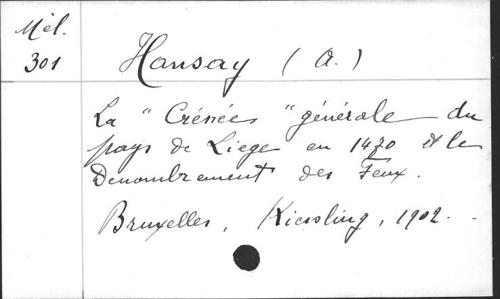 Mél.
301
Hansay (A.)
La "Crénée" générale du
pays de Liege en 1470 et le
Denombrement des Feux.
Bruxelles, Kiessling, 1902.